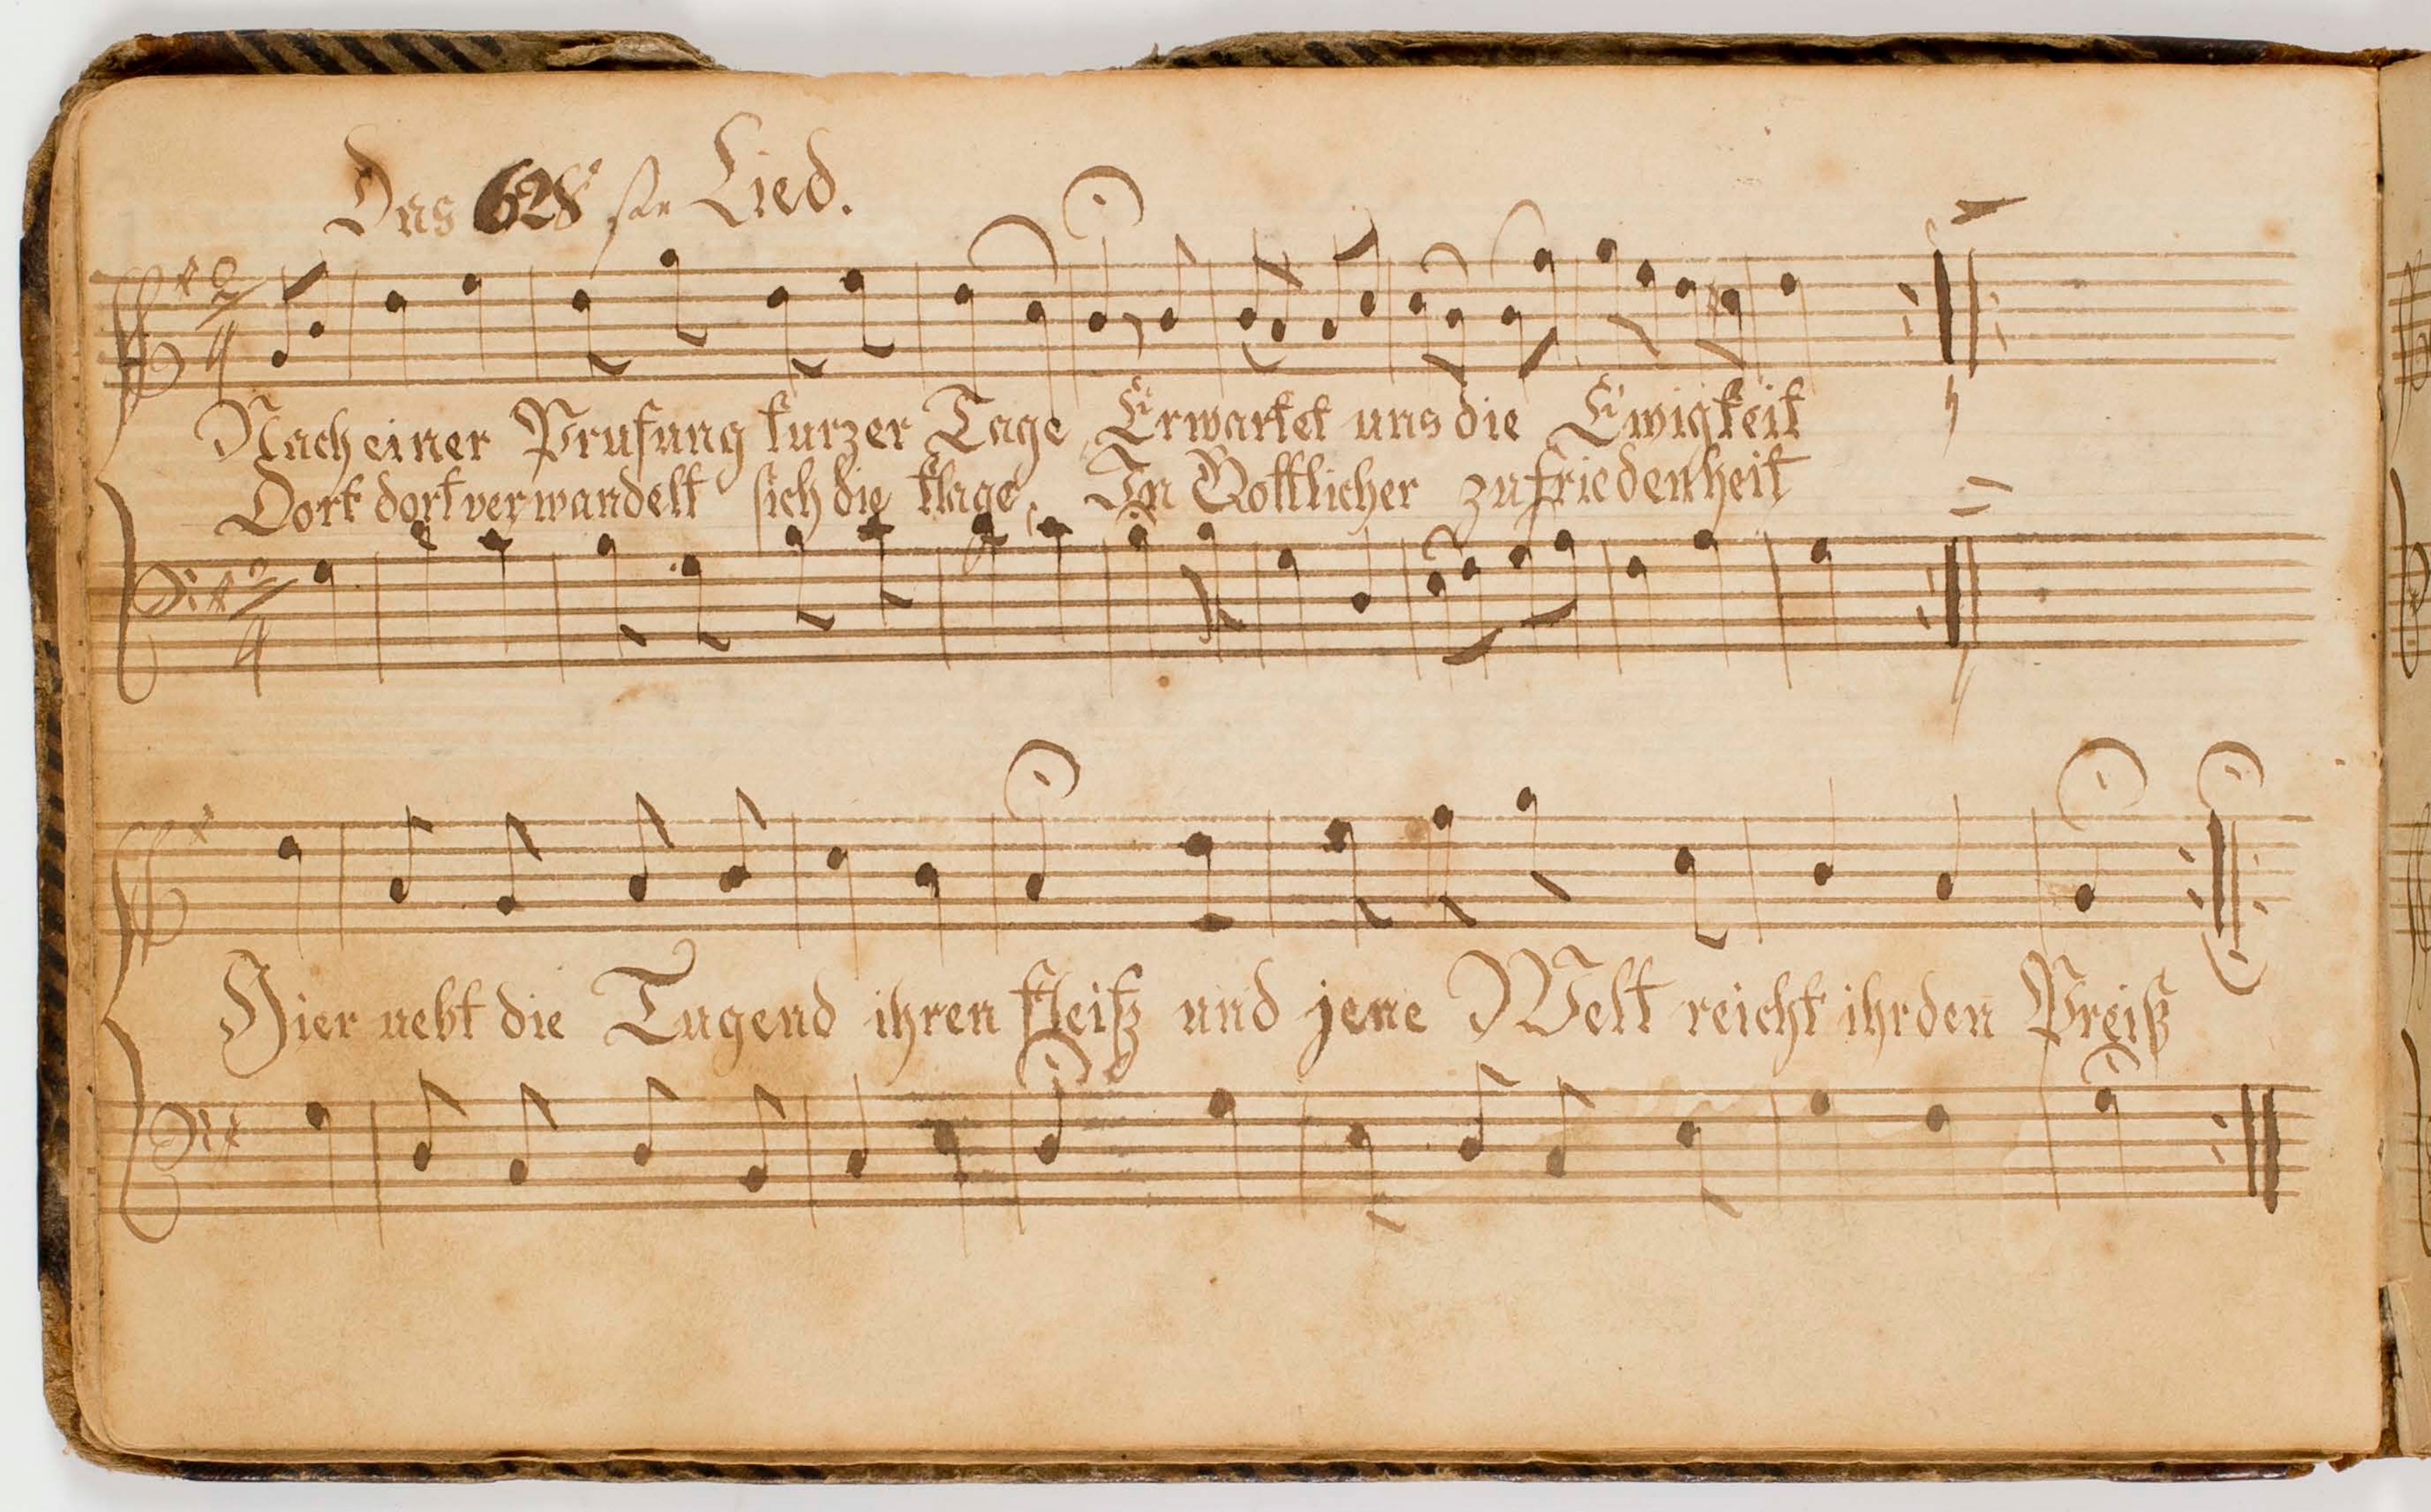 Das 628ste Lied.
2/4
Nach einer Prufung kurzer Tage, Erwartet uns die Ewigkeit
Dort dort verwandelt sich die klage, In Gottlicher zufriedenheit
2/4
Hier uebt die Tugend ihren fleiß und jene Welt reicht ihr den Preiß